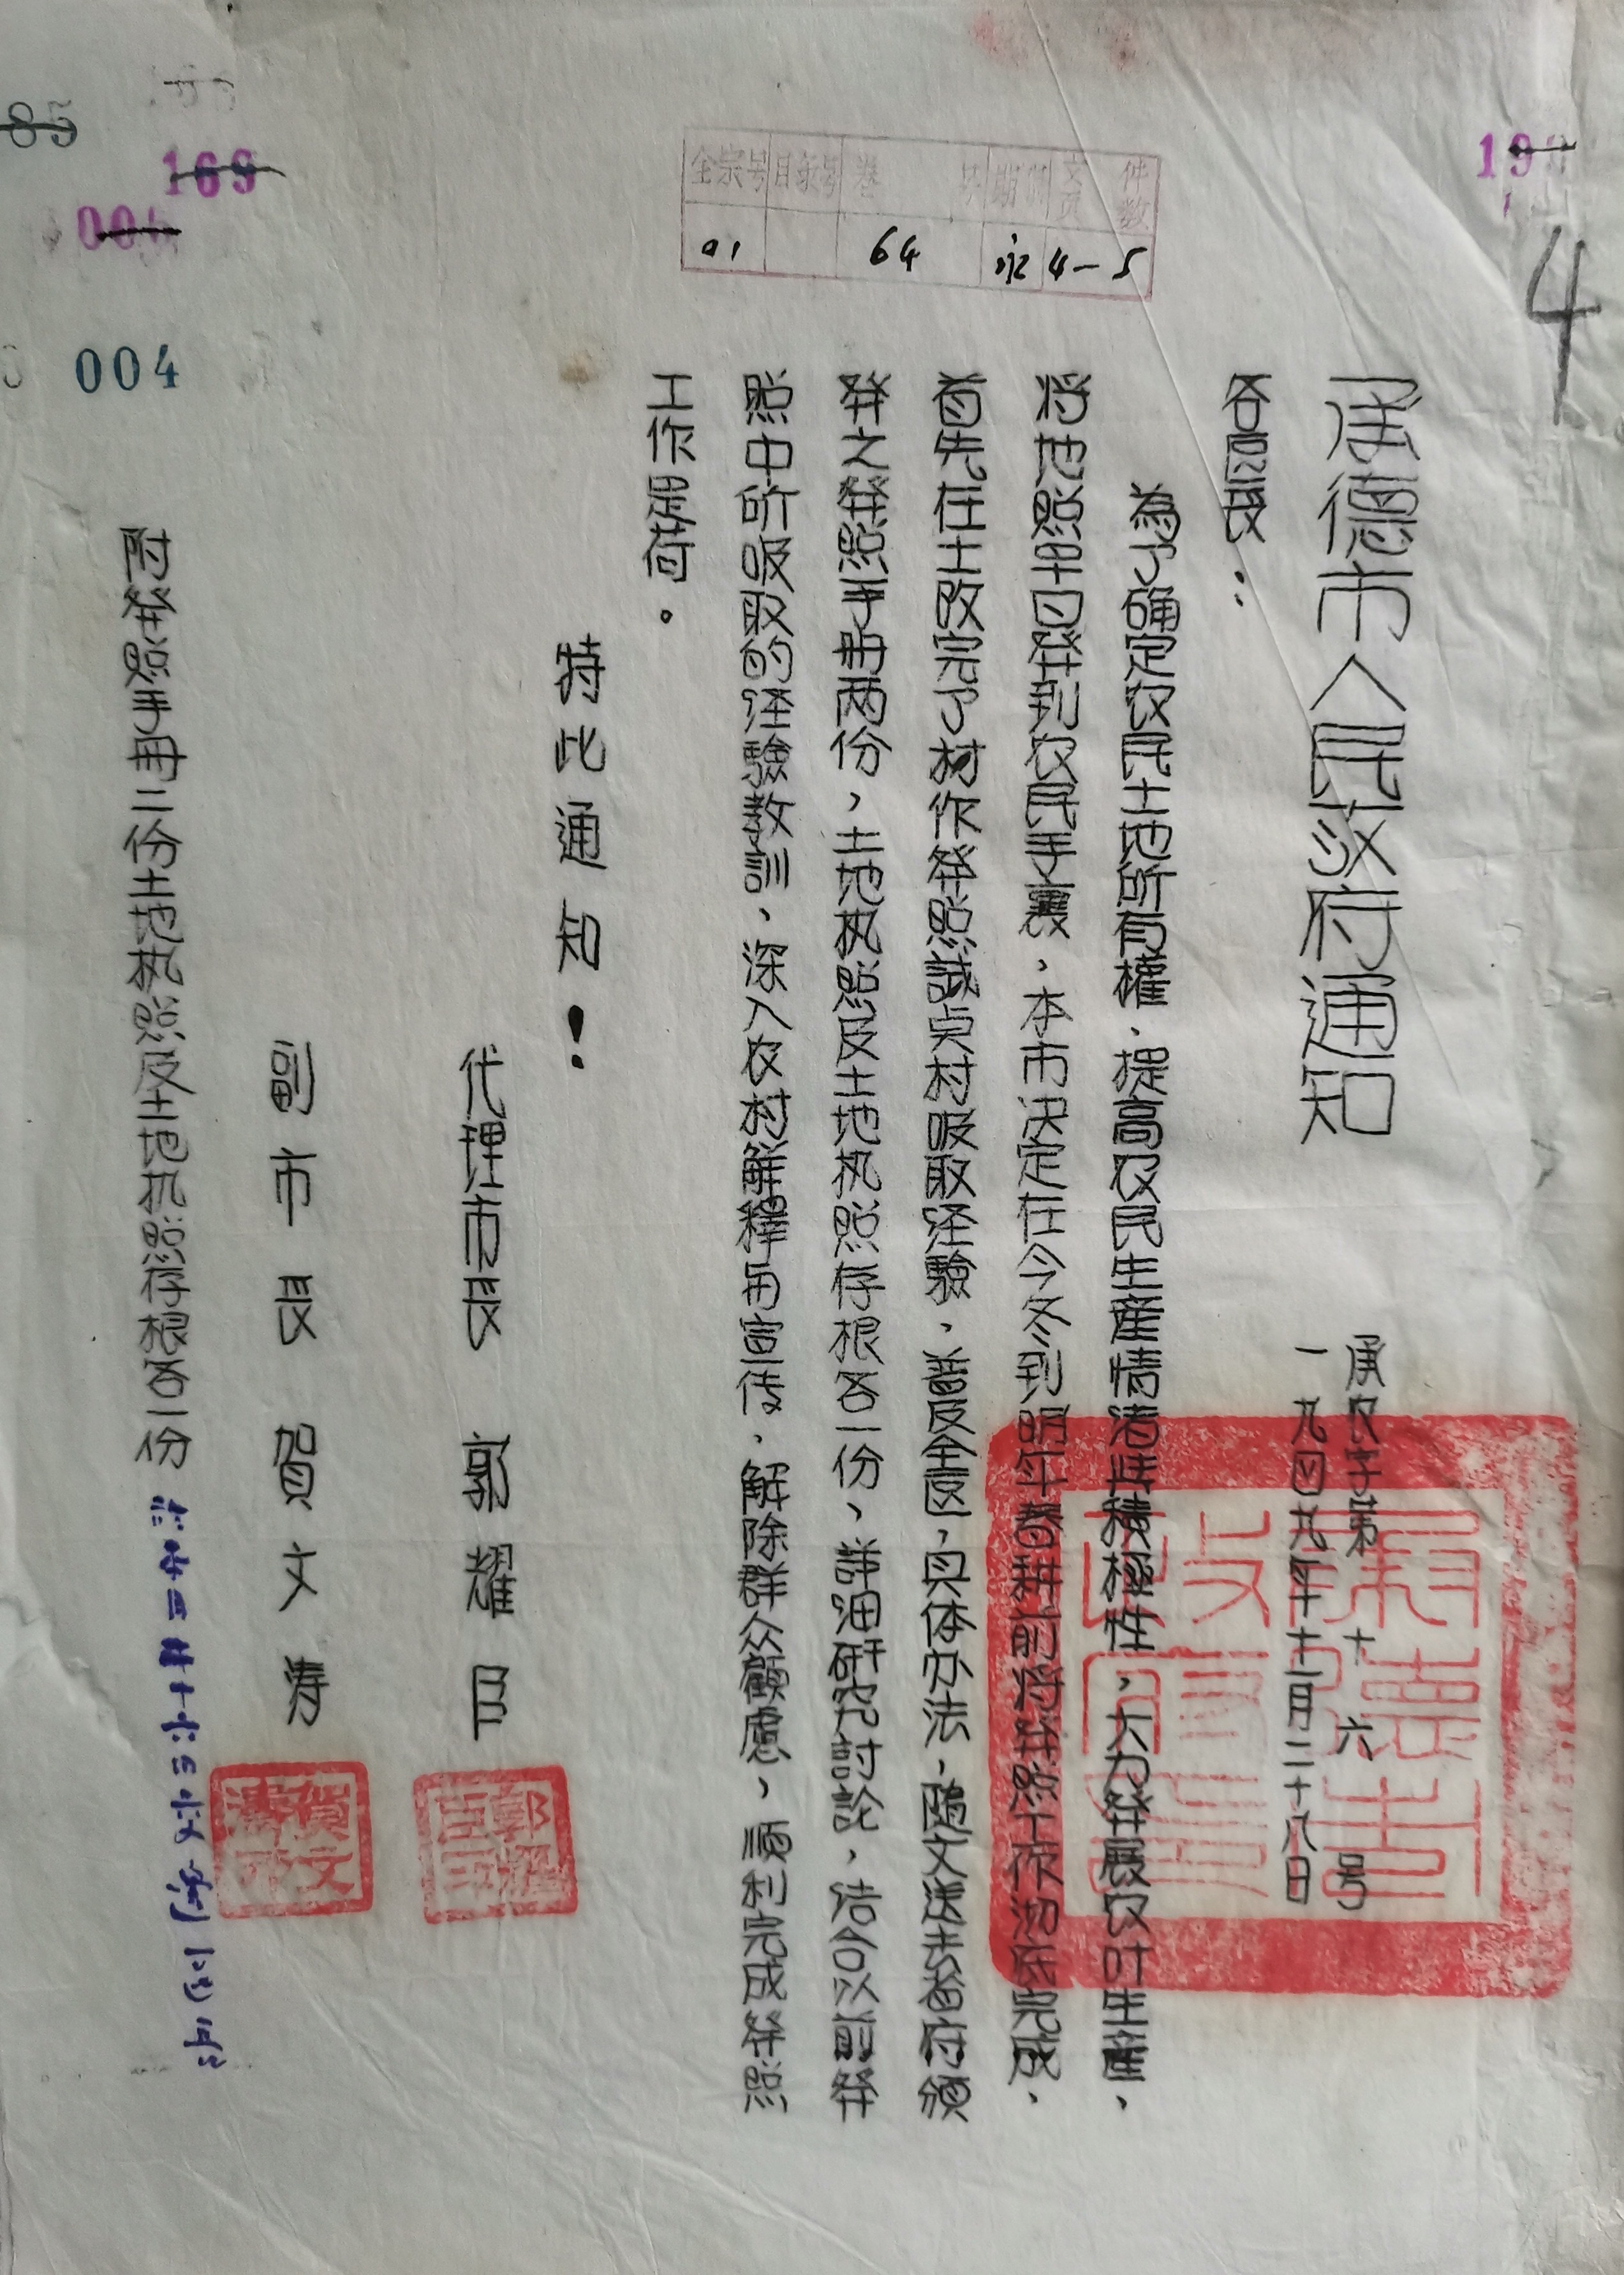 4
承德市人民政府通知
承农字第十六号
一九四九年十二月二十八日
各区長：
為了确定农民土地所有權、提高农民生産情渚与積極性，大力発展农叶生産，
将地照早日発到农民手裏，本市决定在今冬到明年春耕前将発照工作澈底完成，
首先在土改完了村作発照試点村吸取经驗，普及全区，具体办法，随文送去省府頒
発之発照手册两份，土地执照及土地执照存根各一份，詳细研究討論，结合以前発
照中所吸取的经驗教訓，深入农村解釋与宣传，解除群众顧慮，順利完成発照
工作是荷。
特此通知！
代理市長 郭耀臣
副市長 賀文涛
附発照手册二份土地执照及土地执照存根各一份
全宗号 目录号 卷号 期限 文页 件数
01 64 永 4-5
169
004
85